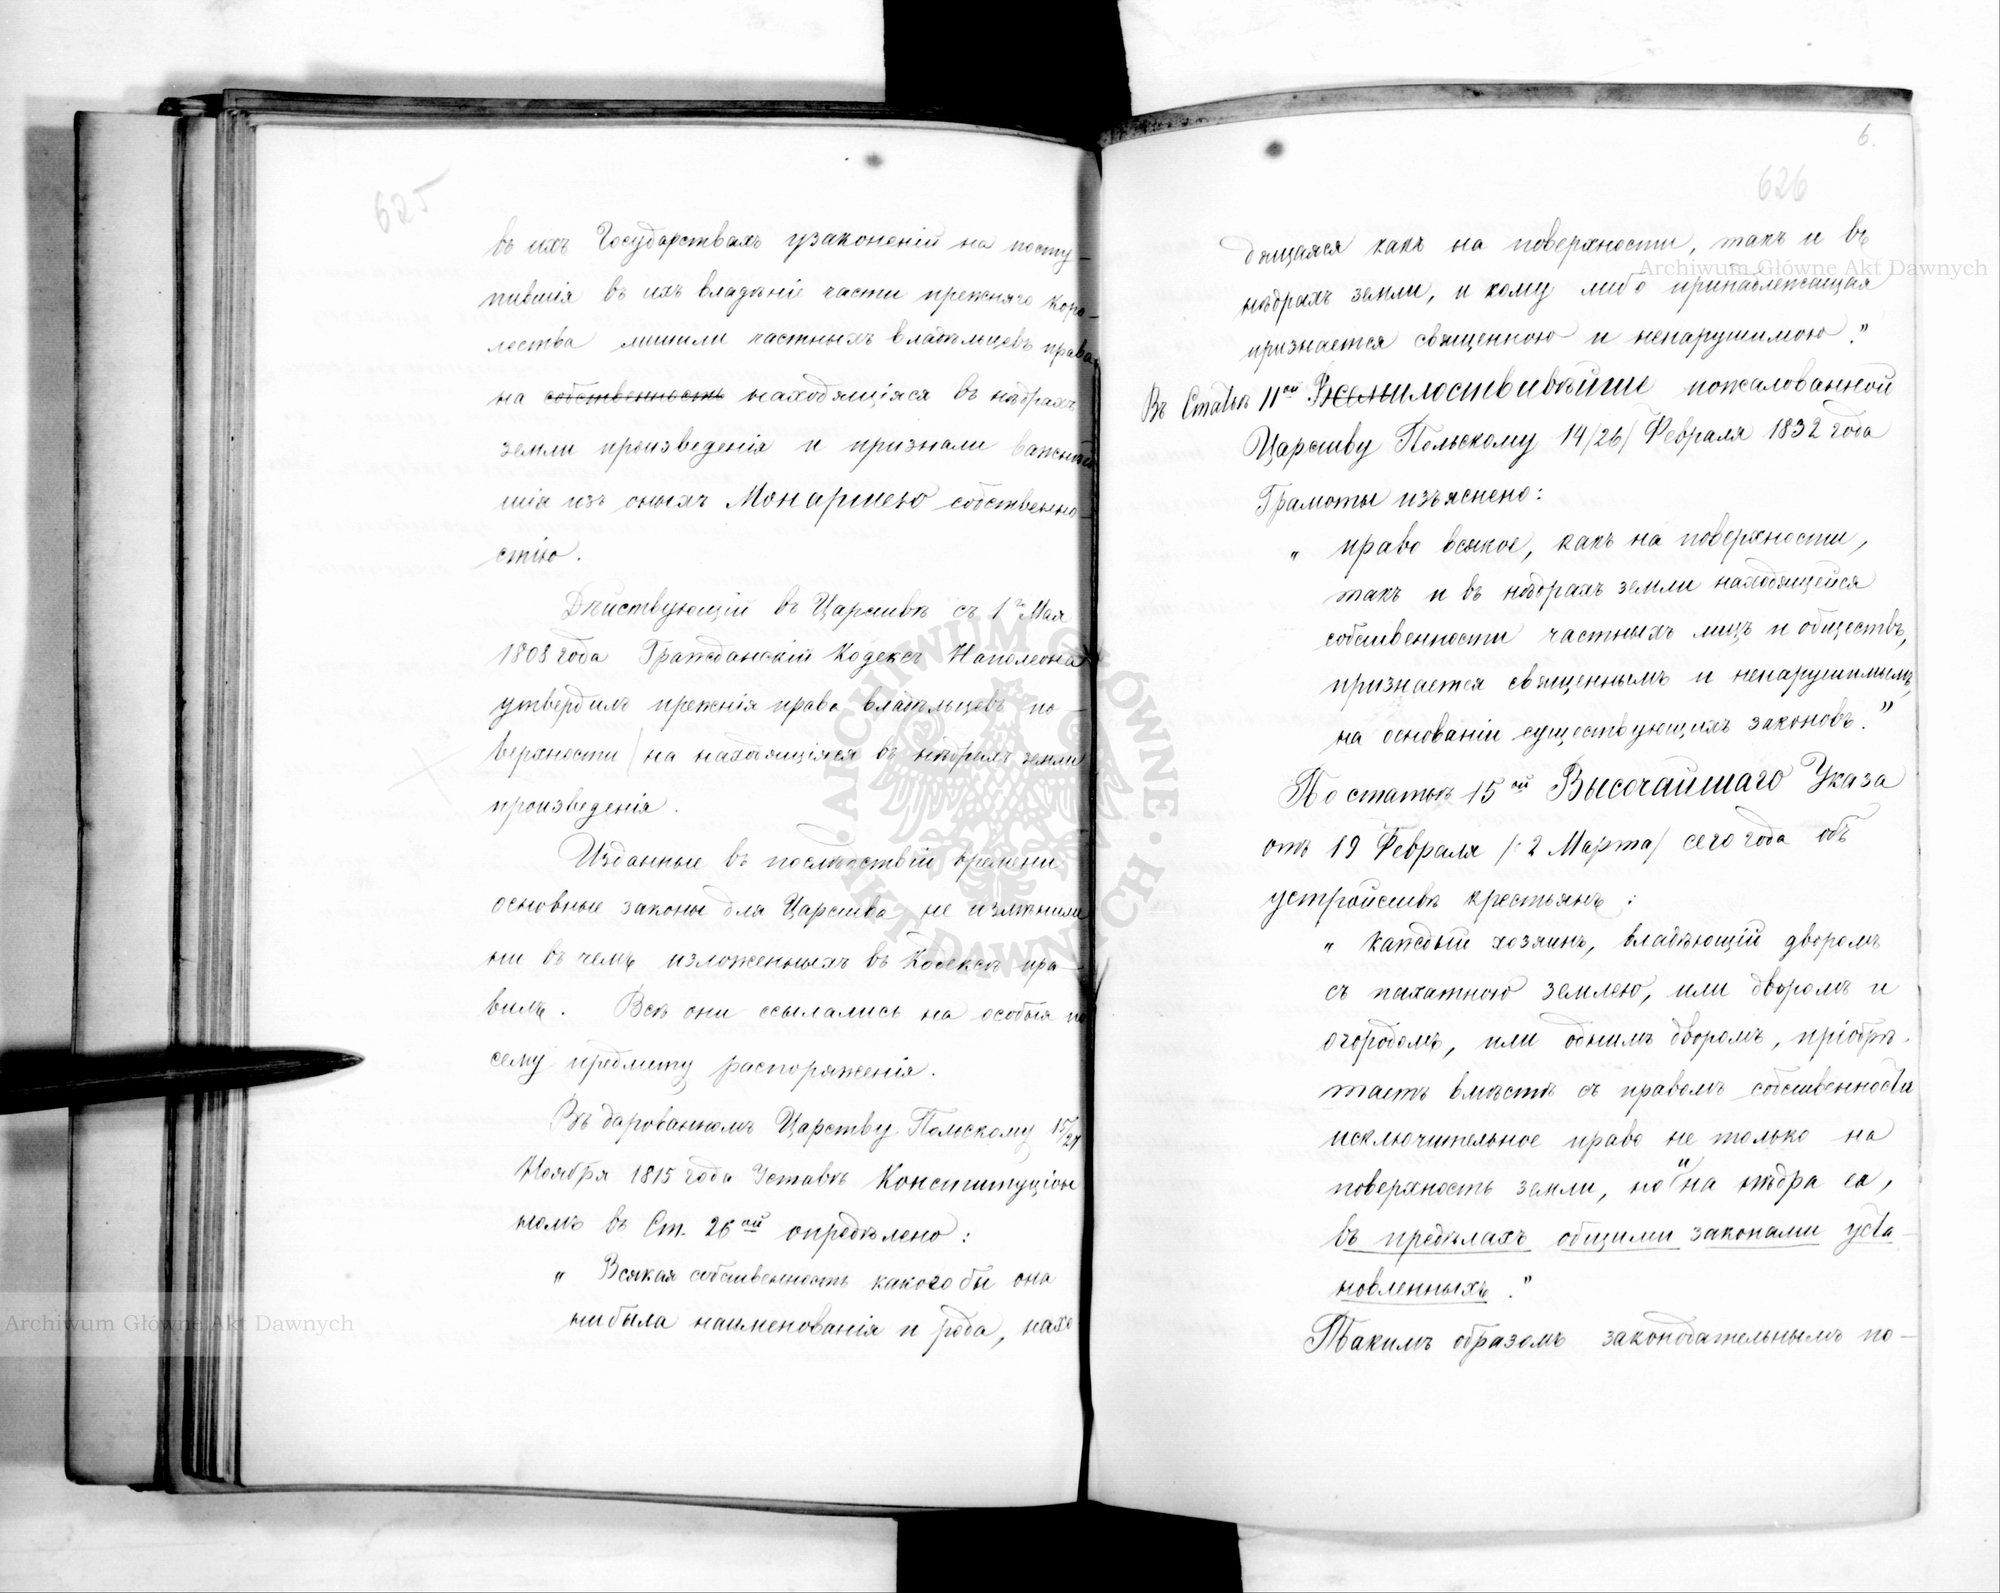 625
въ ихъ Государствахъ узаконеній на посту-
пившія въ ихъ владѣніе части прежняго коро-
левства лишили частныхъ владѣльцевъ права
на собственность находящіяся въ нѣдрахъ
земли произведенія и признали важнѣй
шія изъ оныхъ Монаршею собственно-
стію.
Дѣйствующій въ Царствѣ съ 1го Мая
1808 года Гражданскій Кодексъ Наполеона
утвердилъ прежнія права владѣльцевъ по-
верхности / на находящіяся въ нѣдрахъ земли
произведенія.
Изданные въ послѣдствіи времени
основные законы для Царства, не измѣнили
ни въ чемъ изложенныхъ въ Кодексѣ пра-
вилъ. Всѣ они ссылались на особыя по
сему предмету распоряженія.
Въ дарованномъ Царству Польскому 15/27
Ноября 1815 года Уставѣ Конституціон
номъ въ Ст. 26ой опредѣлено:
„ Всякая собственность какого бы она
ни была наименованія и рода, нахо
6.
626
дящаяся какъ на поверхности, такъ и въ
нѣдрахъ земли, и кому либо принадлежащая
признается священною и ненарушимою."
Въ Статьѣ 11ой Всемилостивѣйше пожалованной
Царству Польскому 14/26/ Февраля 1832 года
Грамоты изъяснено:
„ право всякое, какъ на поверхности,
такъ и въ нѣдрахъ земли находящейся
собственности частныхъ лицъ и обществъ,
признается священнымъ и ненарушимымъ,
на основаніи существующихъ законовъ."
По статьѣ 15ой Высочайшаго Указа
отъ 19 Февраля /2 Марта/ сего года объ
устройствѣ крестьянъ:
„ каждый хозяинъ, владѣющій дворомъ
съ пахатною землею, или дворомъ и
огородомъ, или однимъ дворомъ, пріобрѣ-
таетъ вмѣстѣ съ правомъ собственности
исключительное право не только на
поверхность земли, но и на нѣдра ея,
въ предѣлахъ общими законами уста-
новленныхъ."
Такимъ образомъ законодательнымъ по-
Archiwum Główne Akt Dawnych
Archiwum Główne Akt Dawnych
ARCHIWUM GŁÓWNE AKT DAWNYCH